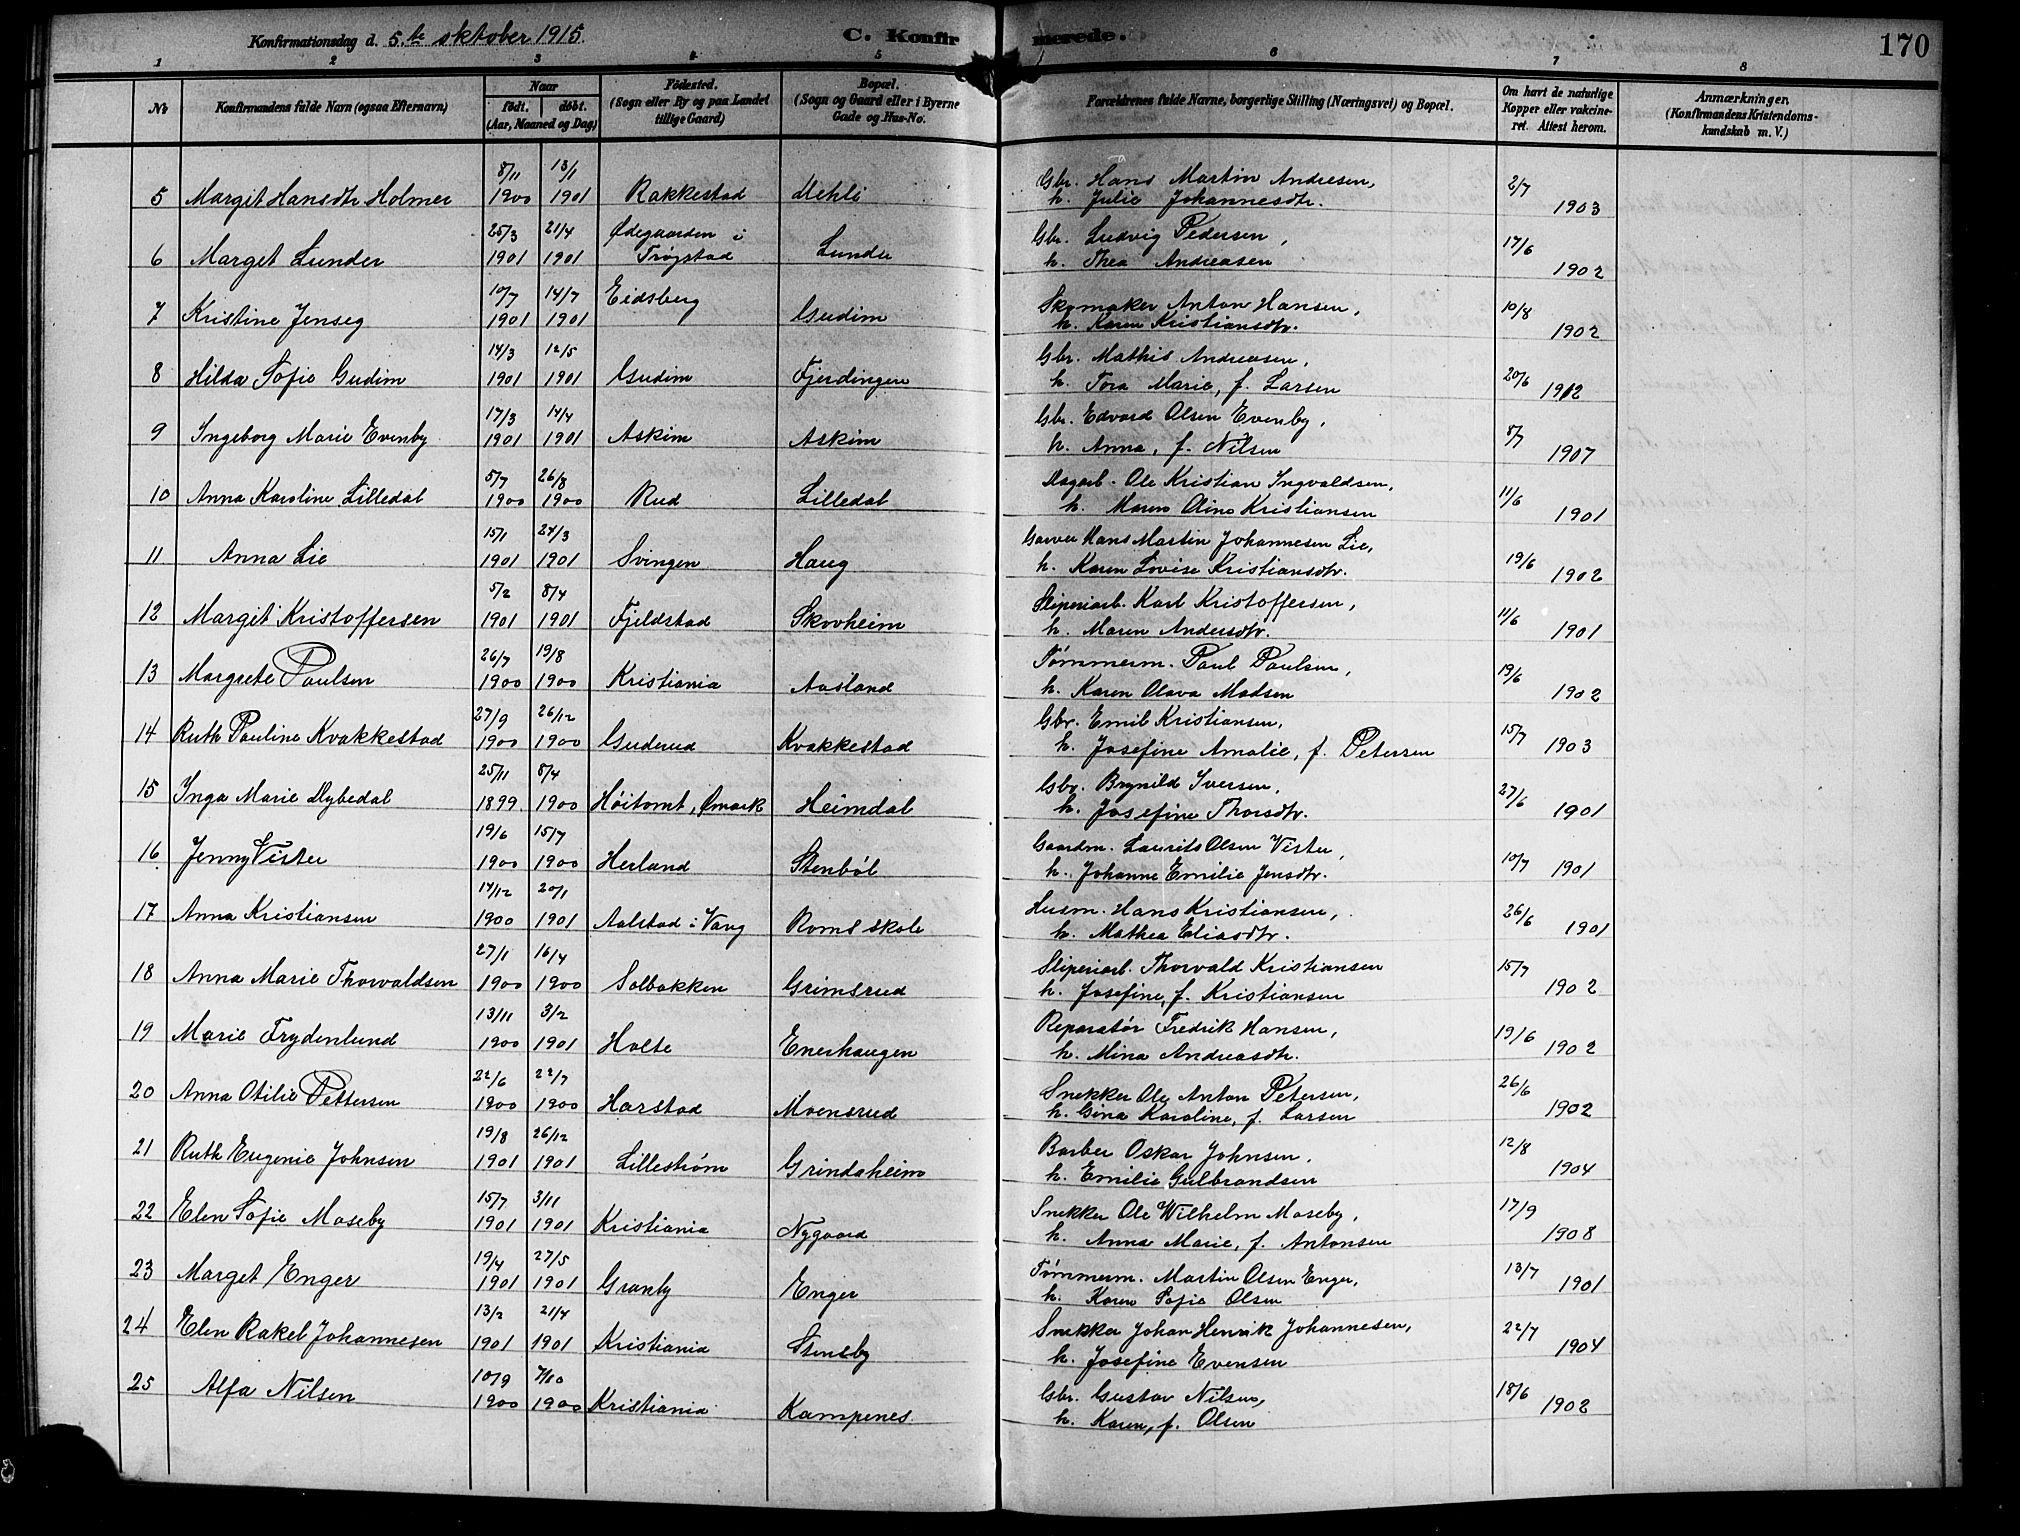 Konfirmationsdag d. 5.te oktober 1915. C. Konfirmerede. 170
1 2 3 4 5 6 7 8
No Konfirmandens fulde Navn (ogsaa Efternavn) Naar født. døbt. (Aar, Maaned og Dag) Fødested. (Sogn eller By og paa Landet tillige Gaard) Bopæl. (Sogn og Gaard eller i Byerne Gade og Hus-No. Forældrenes fulde Navne, borgerlige Stilling (Næringsvei) og Bopæl. Om havt de naturlige Kopper eller vakcineret. Attest herom. Anmærkninger. (Konfirmandens Kristendomskundskab m. V.)
8/11 13/1 Gbr. Hans Martin Andresen, 2/7
5 Margit Hansdtr Holmer 1900 1901 Rakkestad Mehli h. Julie Johannesdtr. 1903
25/3 21/4 Ødegaarden i Gbr. Ludvig Pedersen, 17/6
6 Marget Lunder 1901 1901 Trøgstad Lunder h. Thea Andreasen 1902
10/7 14/7 Eidsberg Skomaker Anton Hansen, 10/8
7 Kristine Jenseg 1901 1901 Gudim h. Karen Kristiansdtr. 1902
14/3 12/5 Gbr. Mathis Andreasen,
8 Hilda Sofie Gudim 1901 1901 Gudim Fjerdingen h. Tora Marie, f. Larsen 20/6 1912
17/3 14/4 Gbr. Edvard Olsen Evenby,
9 Ingeborg Marie Evenby 1901 1901 Askim Askim h. Anna, f. Nilsen 8/7 1907
5/7 26/8 Dagarb. Ole Kristian Ingvaldsen,
10 Anna Karoline Lilledal 1900 1900 Rud Lilledal h. Maren Oline Kristiansen 11/6 1901
15/1 24/3 Garver Hans Martin Johannesen Lie,
11. Anna Lie 1901 1901 Svingen Haug h. Karen Lovise Kristiansdtr. 19/6 1902
5/2 8/4 Sliperiarb. Karl Kristoffersen,
12 Margit Kristoffersen 1901 1901 Fjeldstad Skovheim h. Maren Andersdtr. 11/6 1901
26/7 19/8 Tømmerm. Paul Paulsen,
13 Margrete Paulsen 1900 1900 Kristiania Aasland h. Karen Olava Madsen 19/6 1902
27/9 26/12 Gbr. Emil Kristiansen,
14 Ruth Pauline Kvakkestad 1900 1900 Guderud Kvakkestad h. Josefine Amalie, f. Petersen 15/7 1903
25/11 8/4 Gbr. Brynild Iversen,
15 Inga Marie Dybedal 1899 1900 Høitomt, Ømark Heimdal h. Josefine Thorsdtr. 27/6 1901
19/6 15/7 Gaardm. Laurits Olsen Vister,
16. Jenny Vister 1900 1900 Herland Stenbøl h. Johanne Emilie Jensdtr. 10/7 1901
14/12 20/1 Husm. Hans Kristiansen,
17 Anna Kristiansen 1900 1901 Aalstad i Vang Roms skole h. Mathea Eliasdtr. 26/6 1901
27/1 16/4 Sliperiarb. Thorvald Kristiansen
18 Anna Marie Thorvaldsen 1900 1900 Solbakken Grimsrud h. Josefine, f. Kristiansen 15/7 1902
13/11 3/2 Reparatør Fredrik Hansen,
19 Marie Frydenlund 1900 1901 Holte Enerhaugen h. Mina Andreasdtr. 19/6 1902
22/6 22/7 Snekker Ole Anton Petersen,
20 Anna Otilie Pettersen 1900 1900 Harstad Moensrud h. Gina Karoline, f. Larsen 26/6 1902
19/8 26/12 Barber Oskar Johnsen,
21 Ruth Eugenie Johnsen 1901 1901 Lillestrøm Grindaheim h. Emilie Gulbrandsen 12/8 1904
15/7 3/11 Snekker Ole Wilhelm Moseby,
22 Elen Sofie Moseby 1901 1901 Kristiania Nygaard h. Anna Marie, f. Antonsen 17/9 1908
19/4 27/5 Tømmerm. Martin Olsen Enger,
23 Marget Enger 1901 1901 Granby Enger h. Karen Sofie Olsen 13/7 1901
13/2 21/4 Snekker Johan Henrik Johannesen,
24 Elen Rakel Johannesen 1901 1901 Kristiania Stensby h. Josefine Evensen 22/7 1904
10/9 7/10 Gbr. Gustav Nilsen,
25 Alfa Nilsen 1900 1900 Kristiania Kampenes. h. Karen, f. Olsen 18/6 1902